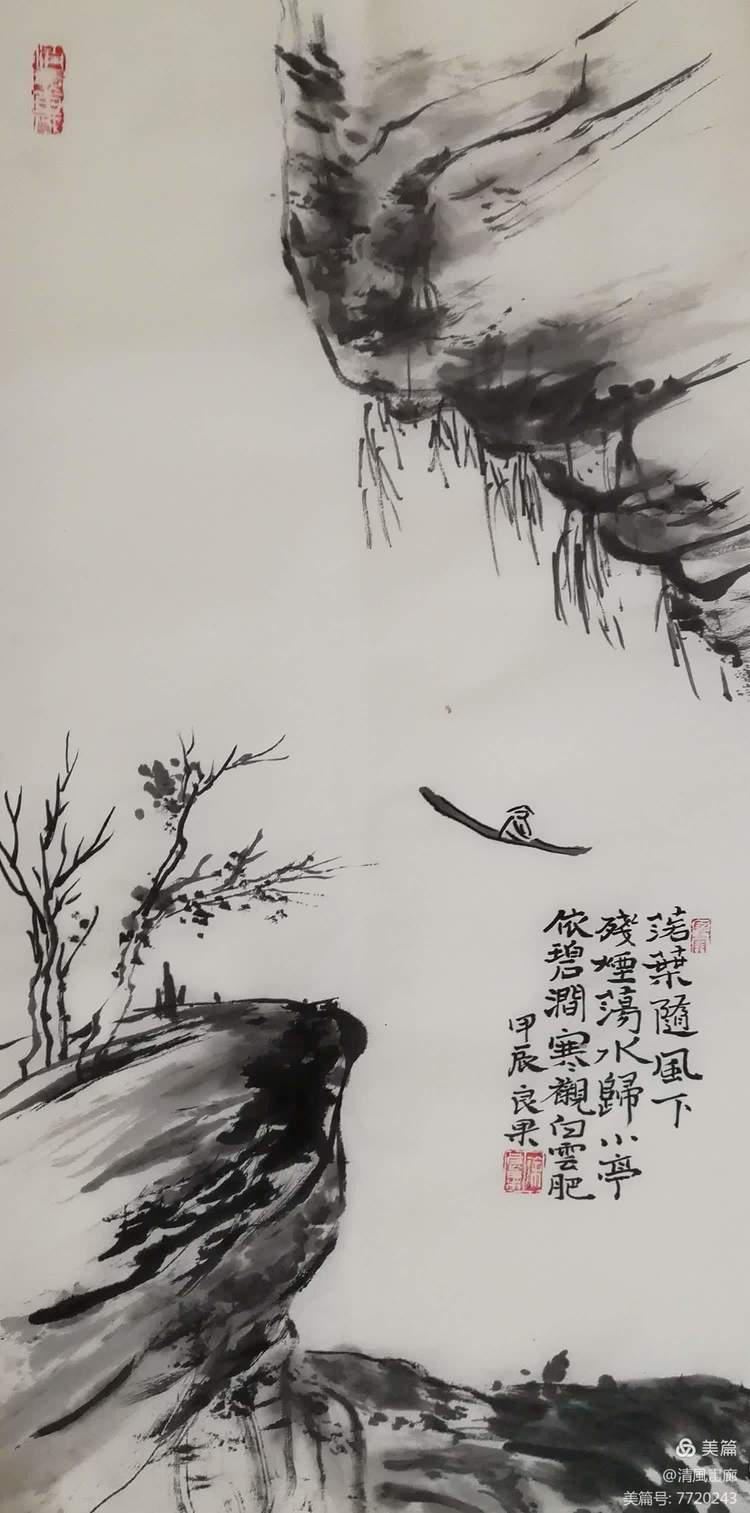 落葉隨風下
殘煙蕩水歸小亭
依碧澗寒觀白雲肥
甲辰良果
美篇
@清風畫廊
美篇号: 7720243